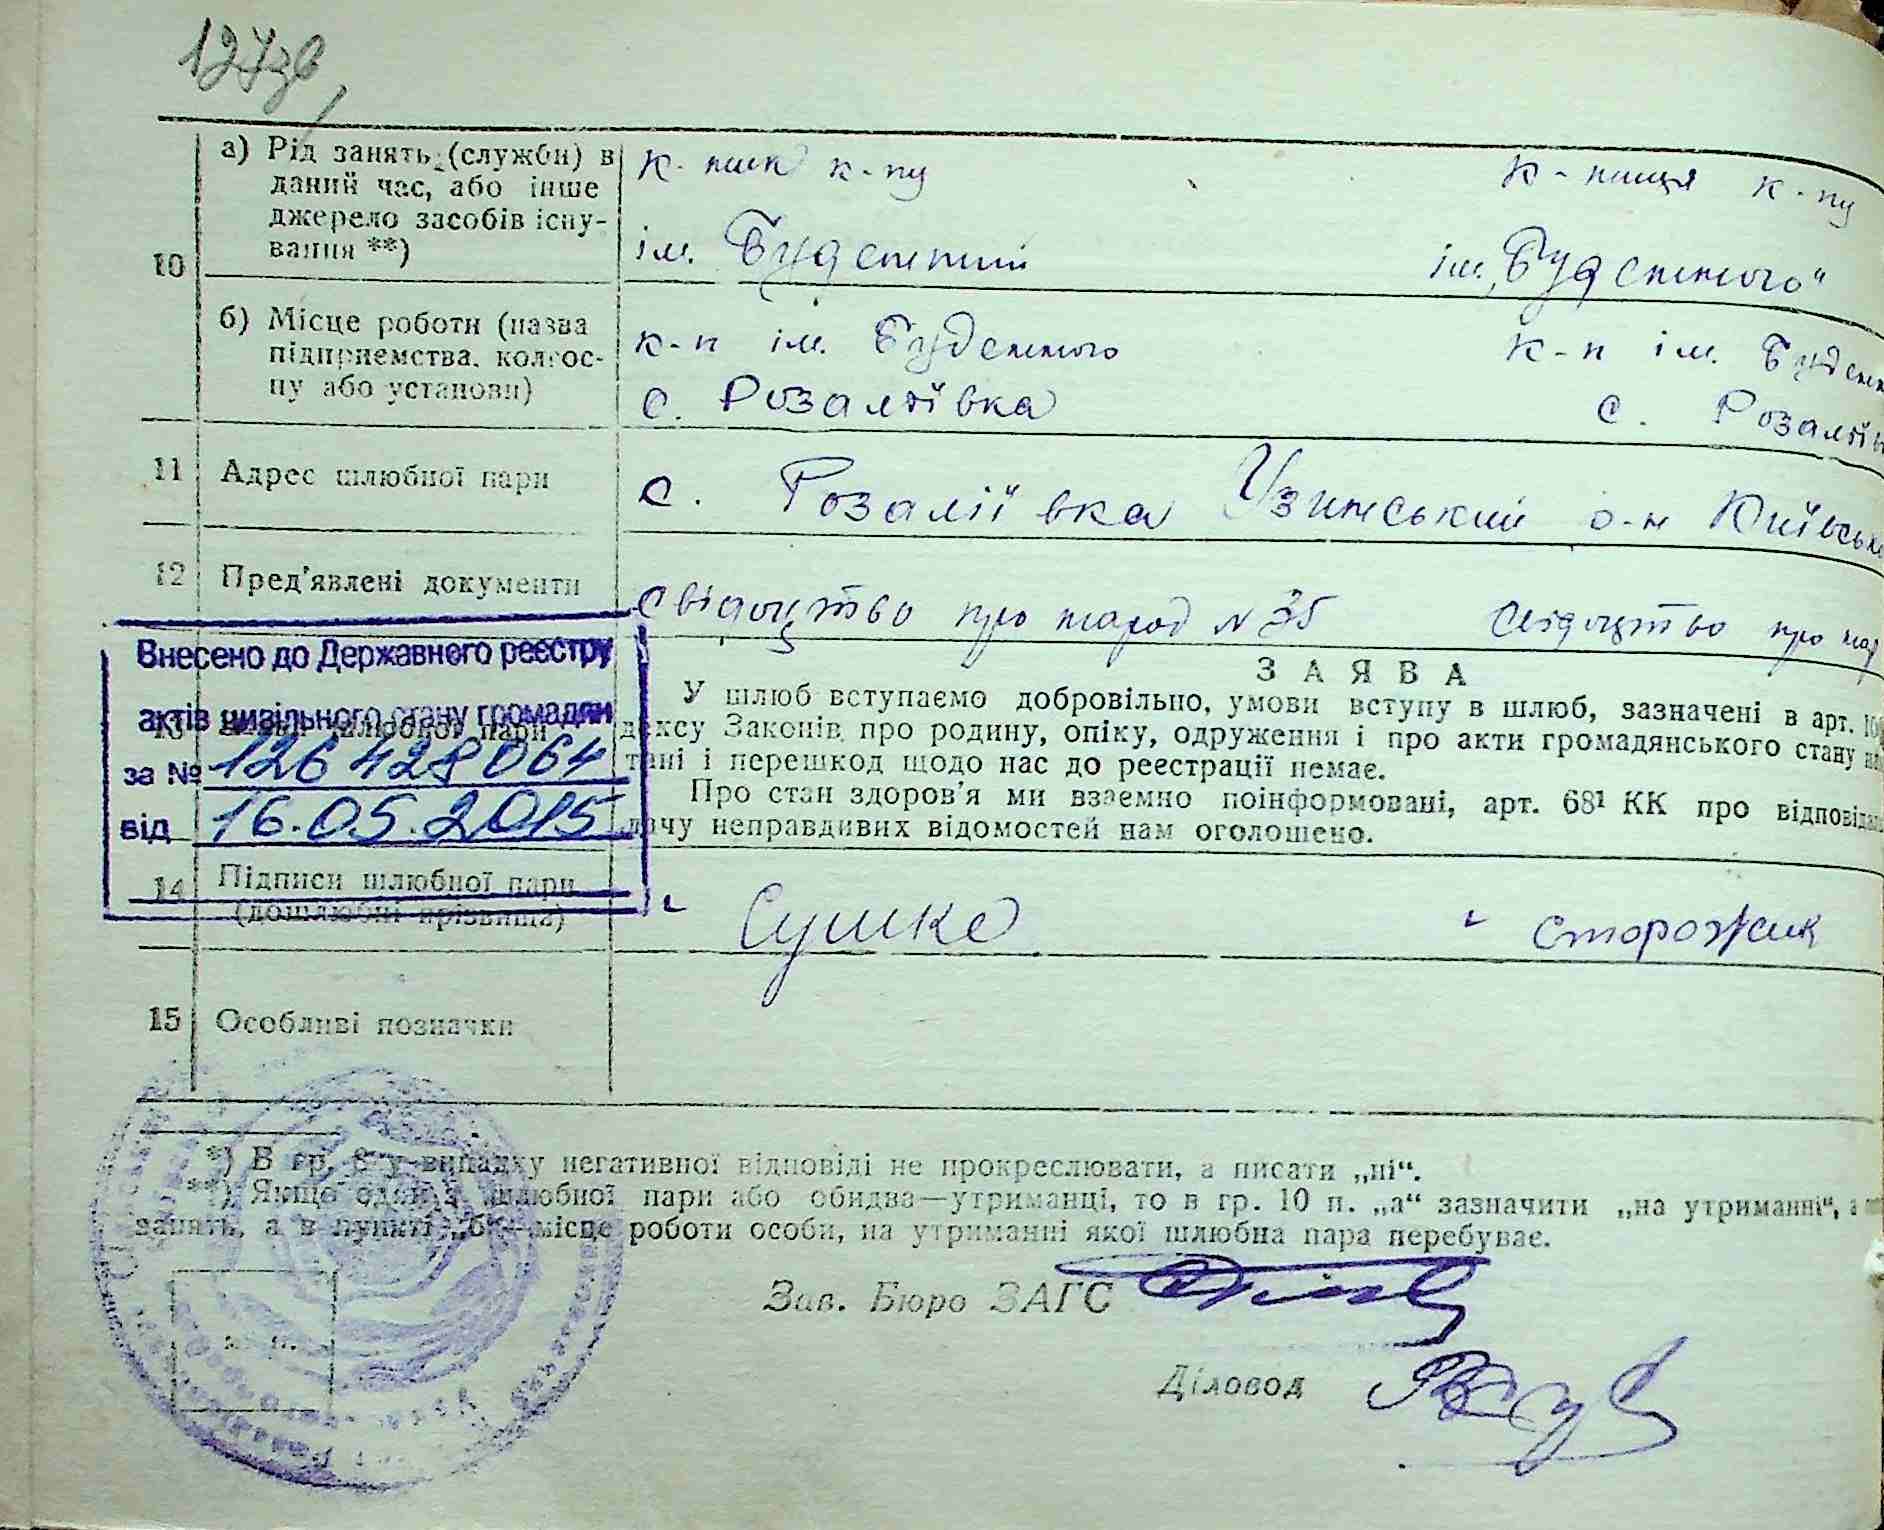 127зв
10
а) Рід занять (служби) в даний час, або інше джерело засобів існування **)
к-ник к-пу
ім. Буденний
к-ниця к-пу
ім. „Буденного"
б) Місце роботи (назва підприємства, колгоспу або установи)
к-п ім. Буденного
с. Розаліївка
к-п ім. Буденн
с. Розаліїв
11 Адрес шлюбної пари
с. Розаліївка Узинський р-н Київськ
12 Пред'явлені документи
Свідоцтво про народ N 35 Свідоцтво про нар
Внесено до Державного реєстру
актів цивільного стану громадян
за № 126 428 064
від 16.05.2015
13 шлюбної пари
ЗАЯВА
У шлюб вступаємо добровільно, умови вступу в шлюб, зазначені в арт.
дексу Законів про родину, опіку, одруження і про акти громадянського стану
тані і перешкод щодо нас до реєстрації немає.
Про стан здоров'я ми взаємно поінформовані, арт. 68¹ КК про відповідал
дачу неправдивих відомостей нам оголошено.
14 Підписи шлюбної пари
(дошлюбні прізвища)
Сушко
Сторожик
15 Особливі позначки
*) В гр. 8 у випадку негативної відповіді не прокреслювати, а писати „ні".
**) Якщо один з шлюбної пари або обидва—утриманці, то в гр. 10 п. „а" зазначити „на утриманні",
занять, а в пункті „б"—місце роботи особи, на утриманні якої шлюбна пара перебуває.
Зав. Бюро ЗАГС
Діловод
м. п.